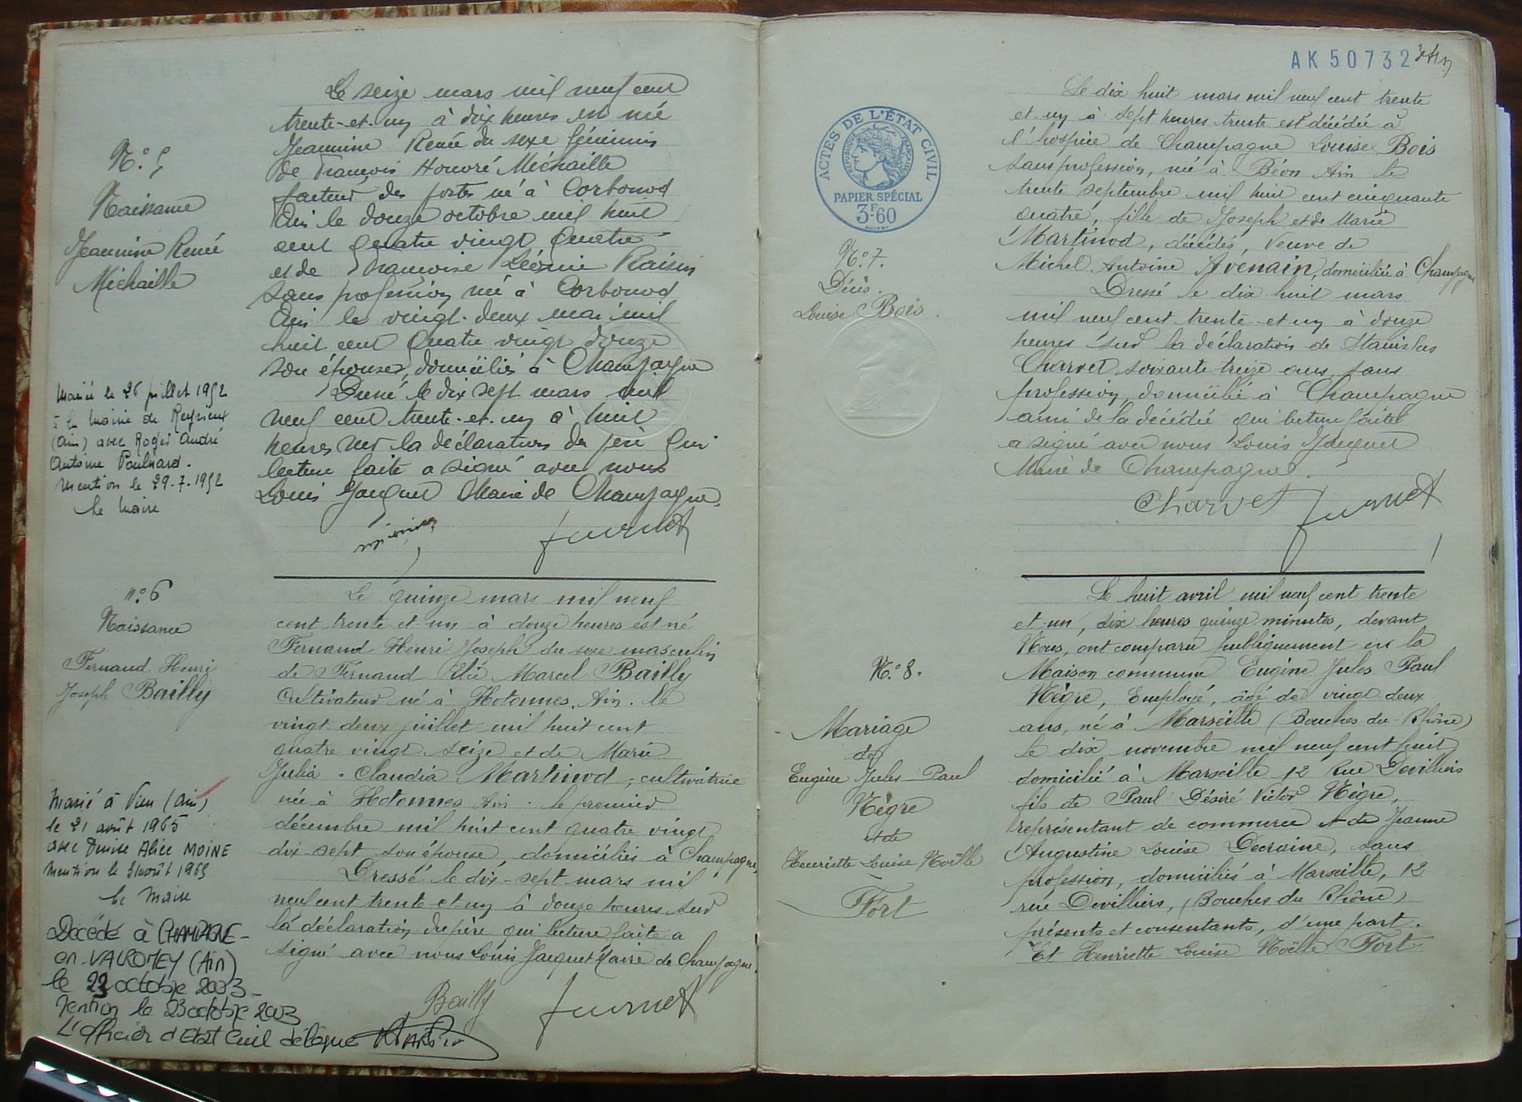 N° 5
Naissance
Jeannine Renée
Michaille
Le seize mars mil neuf cent
trente-et-un à dix heures est née
Jeannine Renée du sexe féminin
de François Honoré Michaille
facteur des postes né à Corbonod
Ain le douze octobre mil huit
cent quatre vingt quatre
et de Françoise Léonie Raisin
sans profession née à Corbonod
Ain le vingt-deux mai mil
huit cent quatre vingt douze
son épouse, domiciliés à Champagne
Dressé le dix sept mars mil
neuf cent trente-et-un à huit
heures sur la déclaration du père qui
lecture faite a signé avec nous
Louis Jacquet Maire de Champagne
Marié le 26 juillet 1952
à la mairie de
(Ain) avec Roger André
Antoine
Mention le 29.7.1952
le Maire
n° 6
Naissance
Fernand Henri
Joseph Bailly
Le quinze mars mil neuf
cent trente et un à douze heures est né
Fernand Henri Joseph du sexe masculin
de Fernand Elie Marcel Bailly
cultivateur né à Hotonnes, Ain. le
vingt deux juillet mil huit cent
quatre vingt seize et de Marie
Julia - Claudia Martinod, cultivatrice
née à Hotonnes Ain. le premier
décembre mil huit cent quatre vingt
dix-sept son épouse, domiciliés à Champagne
Dressé le dix-sept mars mil
neuf cent trente et un à douze heures sur
la déclaration du père qui lecture faite a
signé avec nous Louis Jacquet Maire de Champagne.
Bailly
Marié à (Ain)
le 21 août 1965
avec Denise Alice MOINE
Mention le août 1965
le Maire
Décédé à CHAMPAGNE-
en-VALROMEY (Ain)
le 23 octobre 2003-
Mention le 23 octobre 2003
L'officier d'Etat Civil délégué
AK 50732
ACTES DE L'ÉTAT CIVIL
PAPIER SPÉCIAL
3F60
N° 7.
Décès.
Louise Bois.
Le dix huit mars mil neuf cent trente
et un à sept heures trente est décédée à
l'hospice de Champagne Louise Bois
sans profession, née à Béon Ain le
trente septembre mil huit cent cinquante
quatre, fille de Joseph et de Marie
Martinod, décédés, veuve de
Michel Antoine Avenain, domiciliée à Champagne
Dressé le dix huit mars
mil neuf cent trente-et-un à douze
heures sur la déclaration de Stanislas
Charvet, soixante treize ans, sans
profession, domicilié à Champagne
ami de la décédée qui lecture faite
a signé avec nous Louis Jacquet
Maire de Champagne.
Charvet
N° 8.
Mariage
de
Eugène Jules Paul
Nègre
et de
Henriette Louise Noëlle
Fort
Le huit avril mil neuf cent trente
et un, dix heures quinze minutes, devant
Nous, ont comparu publiquement en la
Maison commune Eugène Jules Paul
Nègre, Employé, âgé de vingt deux
ans, né à Marseille (Bouches du Rhône)
le dix novembre mil neuf cent huit
domicilié à Marseille 12 Rue Devilliers
fils de Paul Désiré Victor Nègre,
représentant de commerce et de Jeanne
Augustine Louise Decraine, sans
profession, domiciliés à Marseille, 12
rue Devilliers, (Bouches du Rhône)
présents et consentants, d'une part.
Et Henriette Louise Noëlle Fort